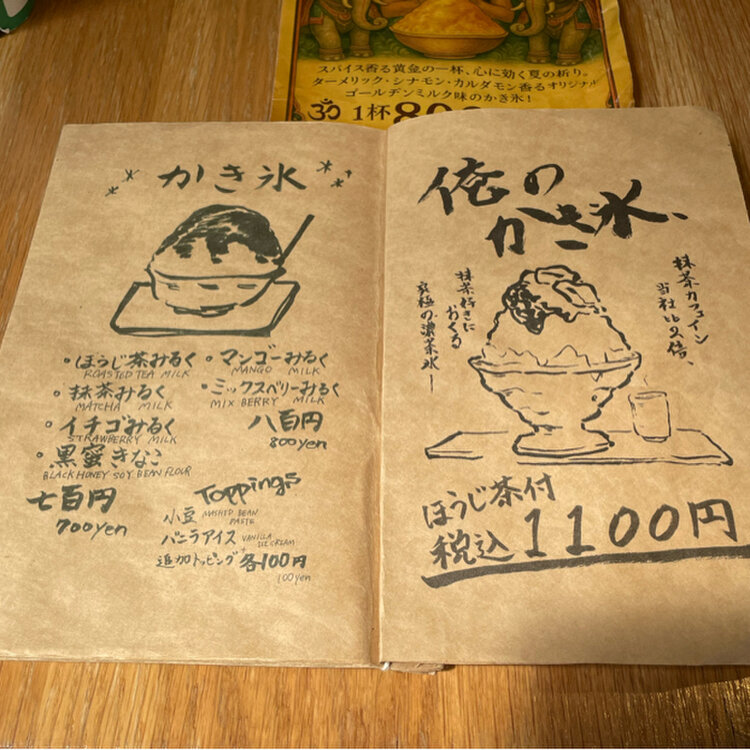 スパイス香る黄金の一杯、心に効く夏の祈り。
ターメリック・シナモン・カルダモン香るオリジナル
ゴールデンミルク味のかき氷!
ॐ 1杯80
かき氷
・ほうじ茶みるく
ROASTED TEA MILK
・抹茶みるく
MATCHA MILK
・イチゴみるく
STRAWBERRY MILK
・黒蜜きなこ
BLACK HONEY SOY BEAN FLOUR
七百円
700yen
・マンゴーみるく
MANGO MILK
・ミックスベリーみるく
MIX BERRY MILK
八百円
800yen
Toppings
小豆 MASHED BEAN PASTE
バニラアイス VANILLA ICE CREAM
追加トッピング 各100円
100yen
俺の
かき氷、
抹茶カフェイン
当社比2倍、
抹茶好きに
おくる
究極の濃茶氷ー
ほうじ茶付
税込1100円